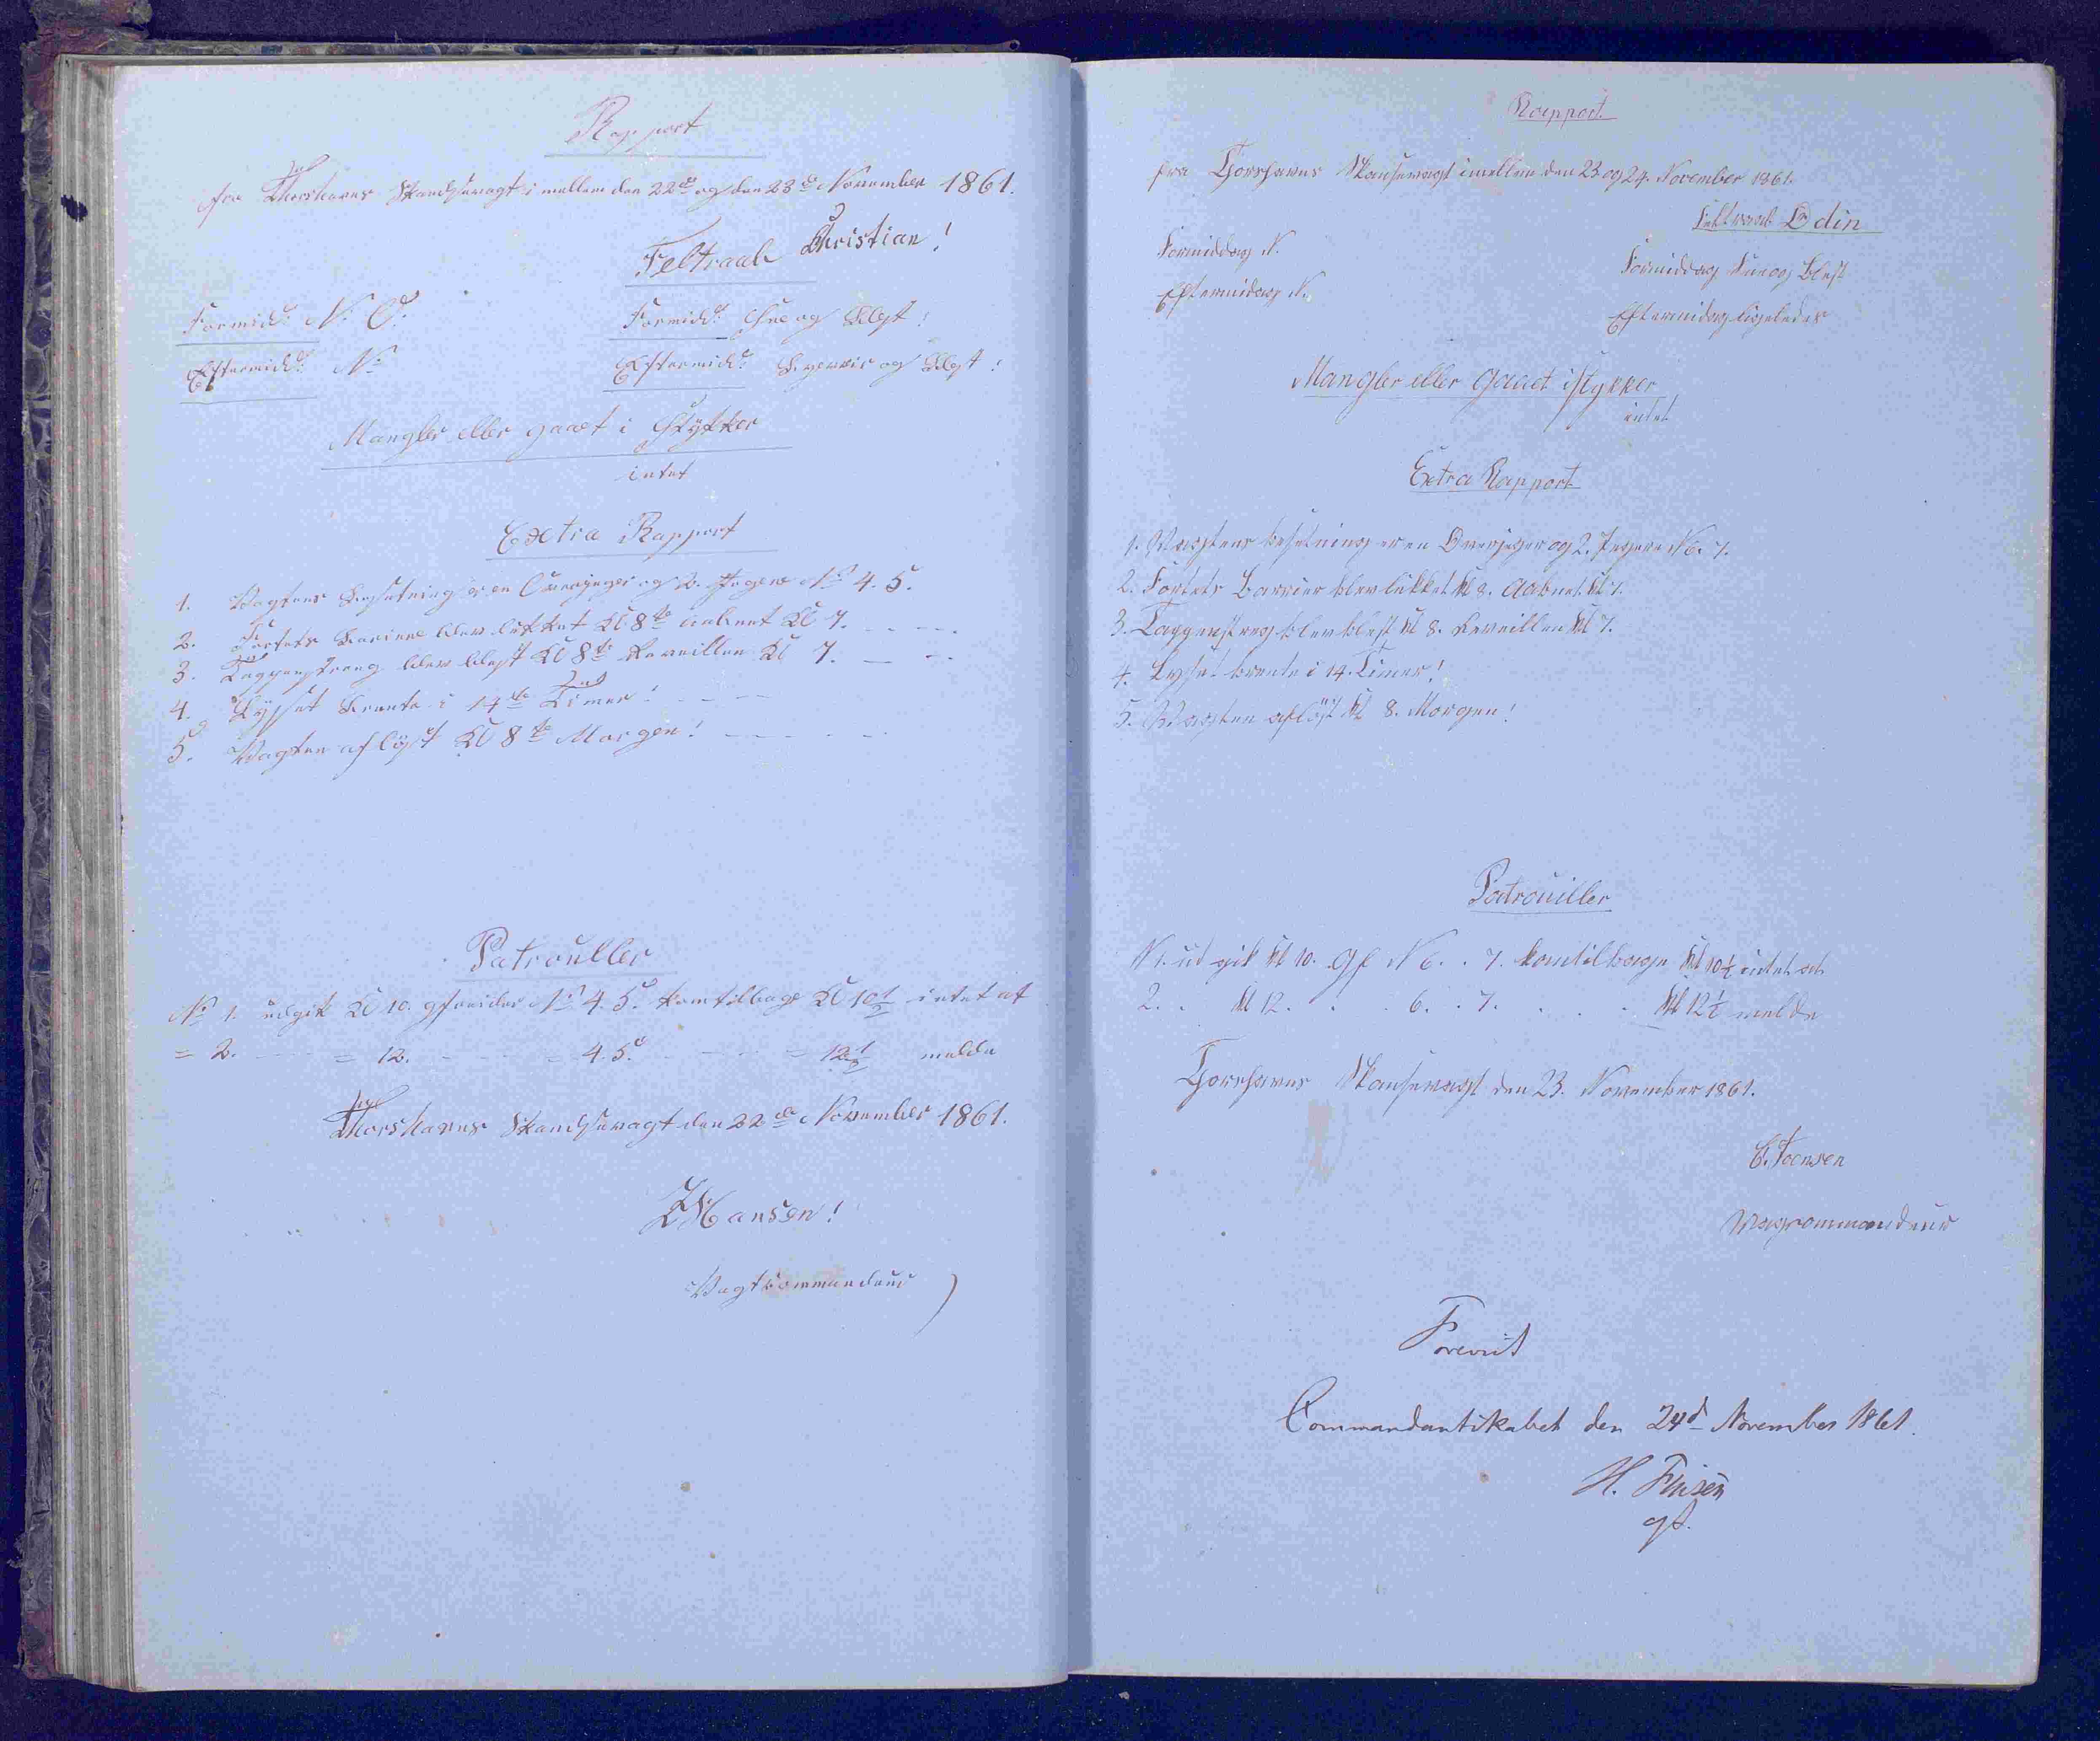 Rapport
fra Thorshavns Skandsevagt i mellem den 22de og den 23de November 1861.
Feltraab Christian!
Formidd: N. O. Formidd: Sne og Blæst!
Eftermidd: N. Eftermidd: Ligervis og Blæst!
Mangler eller gaaet i Stykker
intet
Extra Rapport
1. Vagtens Besætning er en Overjæger og 2. Jægere No 4. 5.
2. Fortets Bariere blev lukket Kl 8te aabnet Kl 7.
3. Tappenstreeg blev blæst Kl 8te Reveillen Kl 7.
4. Lysset brente i 14te Timer!
5. Vagten afløst Kl 8te Morgen!
Patrouller
No 1. udgik Kl 10. gefreider No 4. 5. kom tilbage Kl 10½ intet at
= 2. = 12. = 4. 5. = 12½ melde
Thorshavns Skandsevagt den 22de November 1861.
Hansen!
Vagtcommandeur
Rapport
fra Thorshavns Skansevagt imellem den 23 og 24. November 1861.
Feltraab Odin
Formiddag N. Formiddag Sne og Blest
Eftermidag N. Eftermidag ligeledes
Mangler eller Gaaet i stykker
intet
Extra Rapport
1. Wagtens besetning er en Overjeger og 2. Jegere N 6. 7.
2. Fortets Barrier blev lukket kl 8. Aabnet kl 7.
3. Tappenstreg blev blest kl 8. Reveillen kl 7.
4. Lyset brente i 14. Timer!
5. Wagten afløst kl 8. Morgen!
Patrouiller
N 1. ud gik kl 10. Gf N 6. . 7. kom tilbage kl 10½ intet at
2. . kl 12. . . 6. . 7. . . . kl 12½ melde
Thorshavns Skansevagt den 23. November 1861.
Joensen
Wagcommandeur
Forevist
Commandantskabet den 24d November 1861.
H. Finsen
gf.